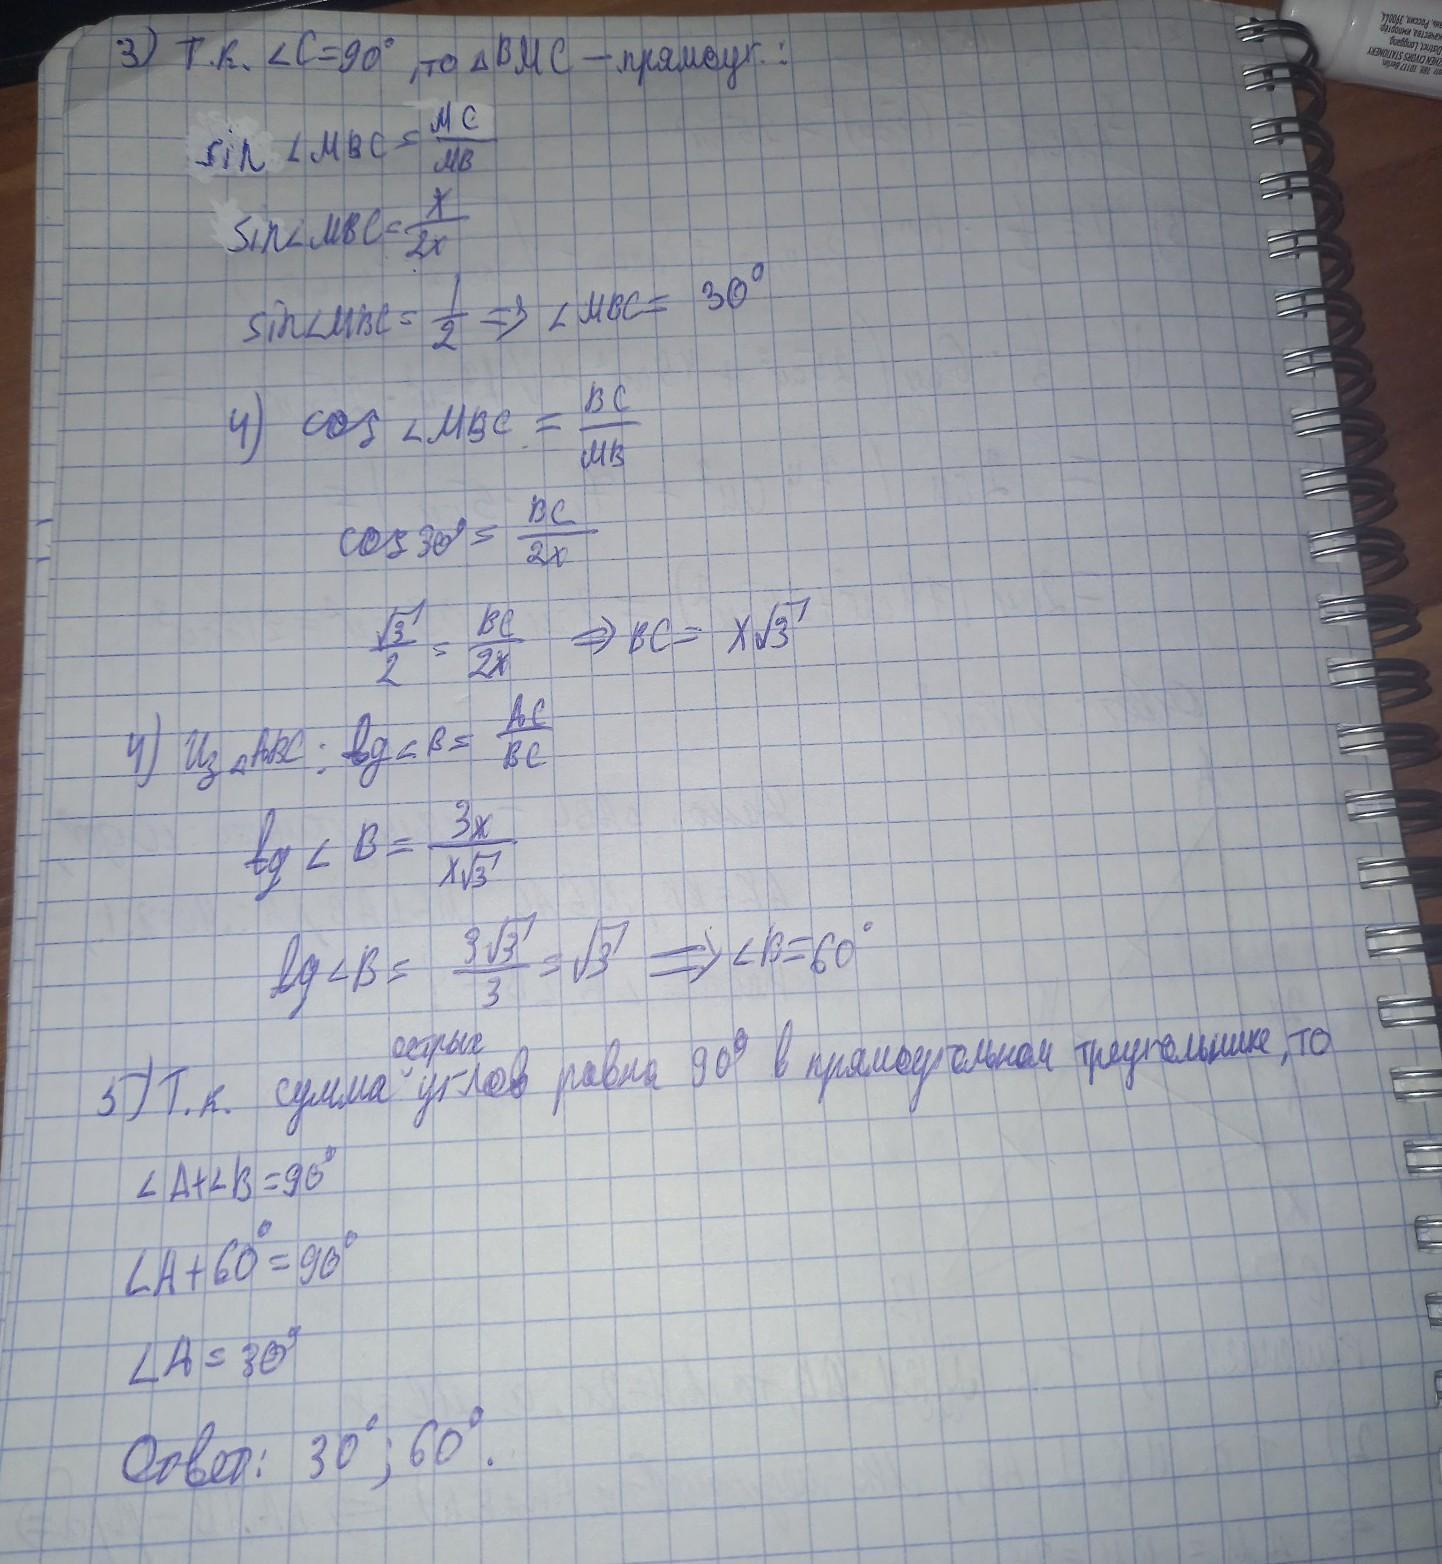 3) Т.к. ∠C=90°, то △BMC – прямоуг.:
sin ∠MBC = MC/MB
sin∠MBC = x/2x
sin∠MBC = 1/2 => ∠MBC = 30°
4) cos ∠MBC = BC/MB
cos 30° = BC/2x
√3/2 = BC/2x => BC = x√3
4) Из △ABC: tg∠B = AC/BC
tg∠B = 3x/x√3
tg∠B = 3√3/3 = √3 => ∠B=60°
5) Т.к. сумма острых углов равна 90° в прямоугольном треугольнике, то
∠A+∠B=90°
∠A+60°=90°
∠A=30°
Ответ: 30°; 60°.